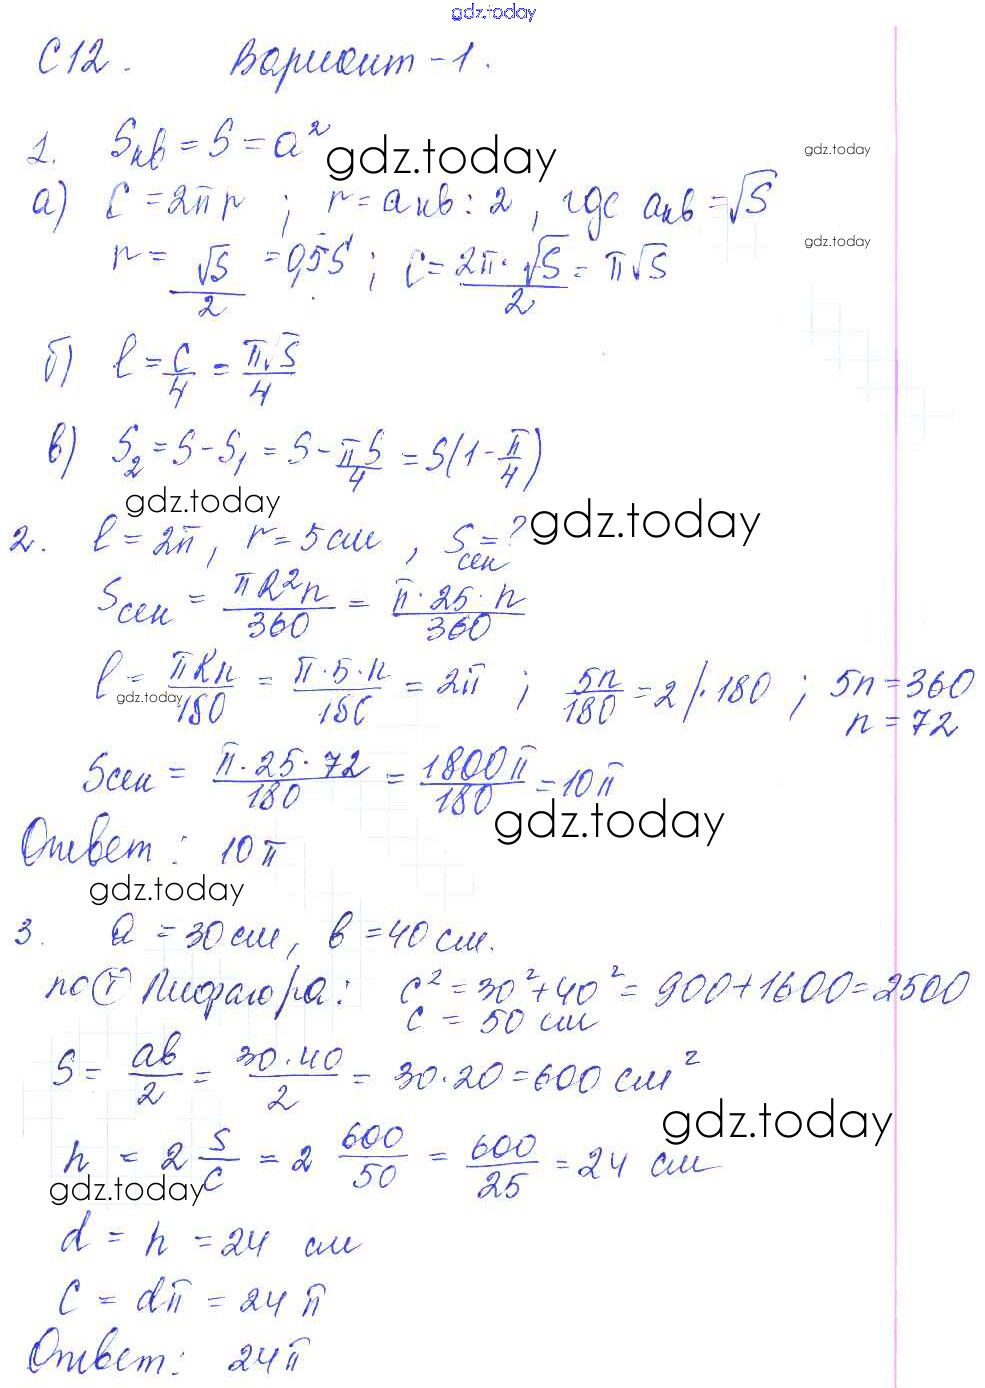 gdz.today
С12. Вариант-1.
1. Sкв = S = a²
gdz.today
gdz.today
а) C = 2πr ; r = aкв : 2 , где aкв = √S
gdz.today
r = √S/2 = 0,5S ; C = 2π·√S/2 = π√S
б) l = C/4 = π√S/4
в) S₂ = S - S₁ = S - πS/4 = S(1 - π/4)
gdz.today
gdz.today
2. l = 2π, r = 5 см , Sсек = ?
Sсек = πR²n/360 = π·25·n/360
l = πRn/180 = π·5·n/180 = 2π ; 5n/180 = 2 /·180 ; 5n = 360
gdz.today
n = 72
Sсек = π·25·72/180 = 1800π/180 = 10π
gdz.today
Ответ: 10π
gdz.today
3. a = 30 см, в = 40 см.
по Т Пифагора: c² = 30² + 40² = 900 + 1600 = 2500
c = 50 см
S = aв/2 = 30·40/2 = 30·20 = 600 см²
gdz.today
h = 2 S/C = 2 600/50 = 600/25 = 24 см
gdz.today
d = h = 24 см
C = dπ = 24π
Ответ: 24π